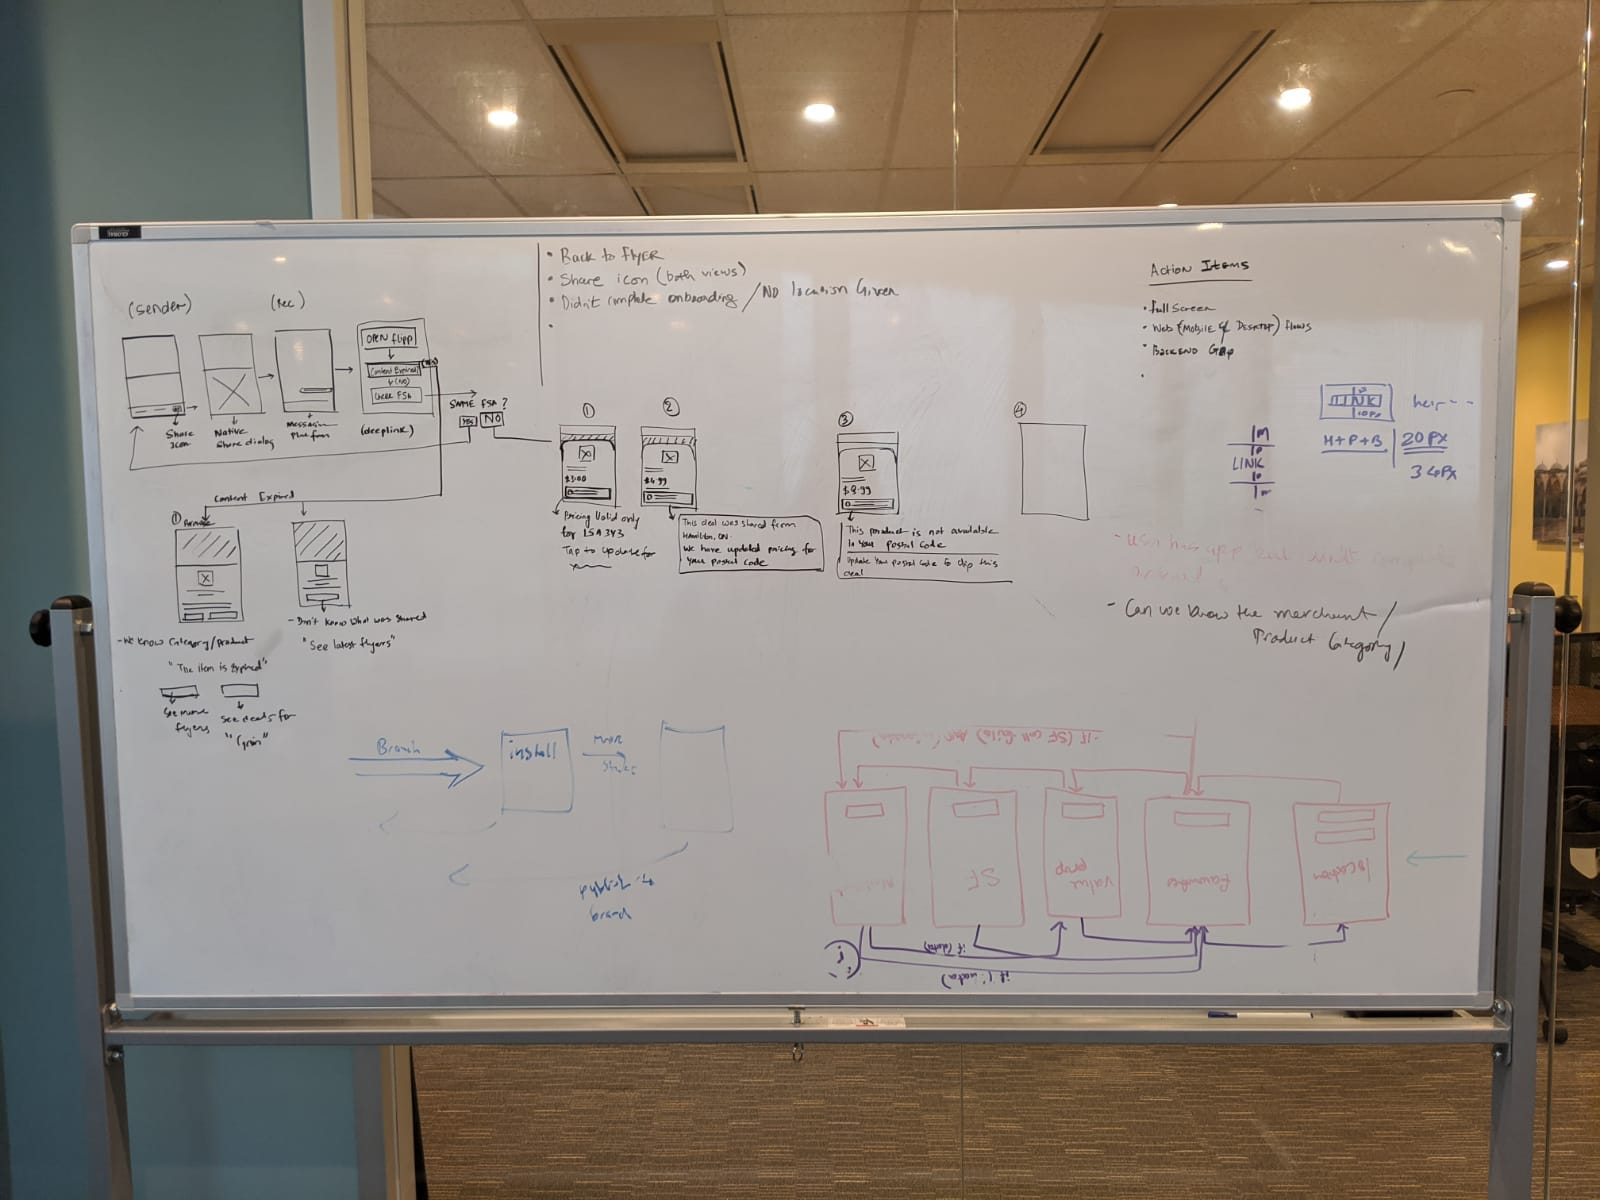 (Sender)
(Rec)
Share
Icon
Native
Share dialog
Messaging
Platform
OPEN flipp
Content Expired
(YES)
(NO)
Check FSA
(deeplink)
SAME FSA ?
YES
NO
Content Expired
①
- We know Category/Product
"The item is Expired"
See more
flyers
See deals for
- Don't know what was shared
"See latest flyers"
• Back to flyer
• Share icon (both views)
• Didn't complete onboarding / No location Given
①
$3.00
Pricing Valid only
for L5A 3Y3
Tap to update for
②
$4.99
This deal was shared from
Hamilton, ON.
We have updated pricing for
your postal code
③
$8.99
This product is not available
in your postal code
Update your postal code to clip this
deal
④
Action Items
• full screen
• Web (Mobile & Desktop) flows
• Backend Gap
LINK
10px
M+P+B
20px
36px
1m
10
LINK
10
1m
- Can we know the merchant /
Product Category /
Branch
install
brand
- if (SF call fails)
SF
value
prop
favourites
location
if (data)
if (!data)